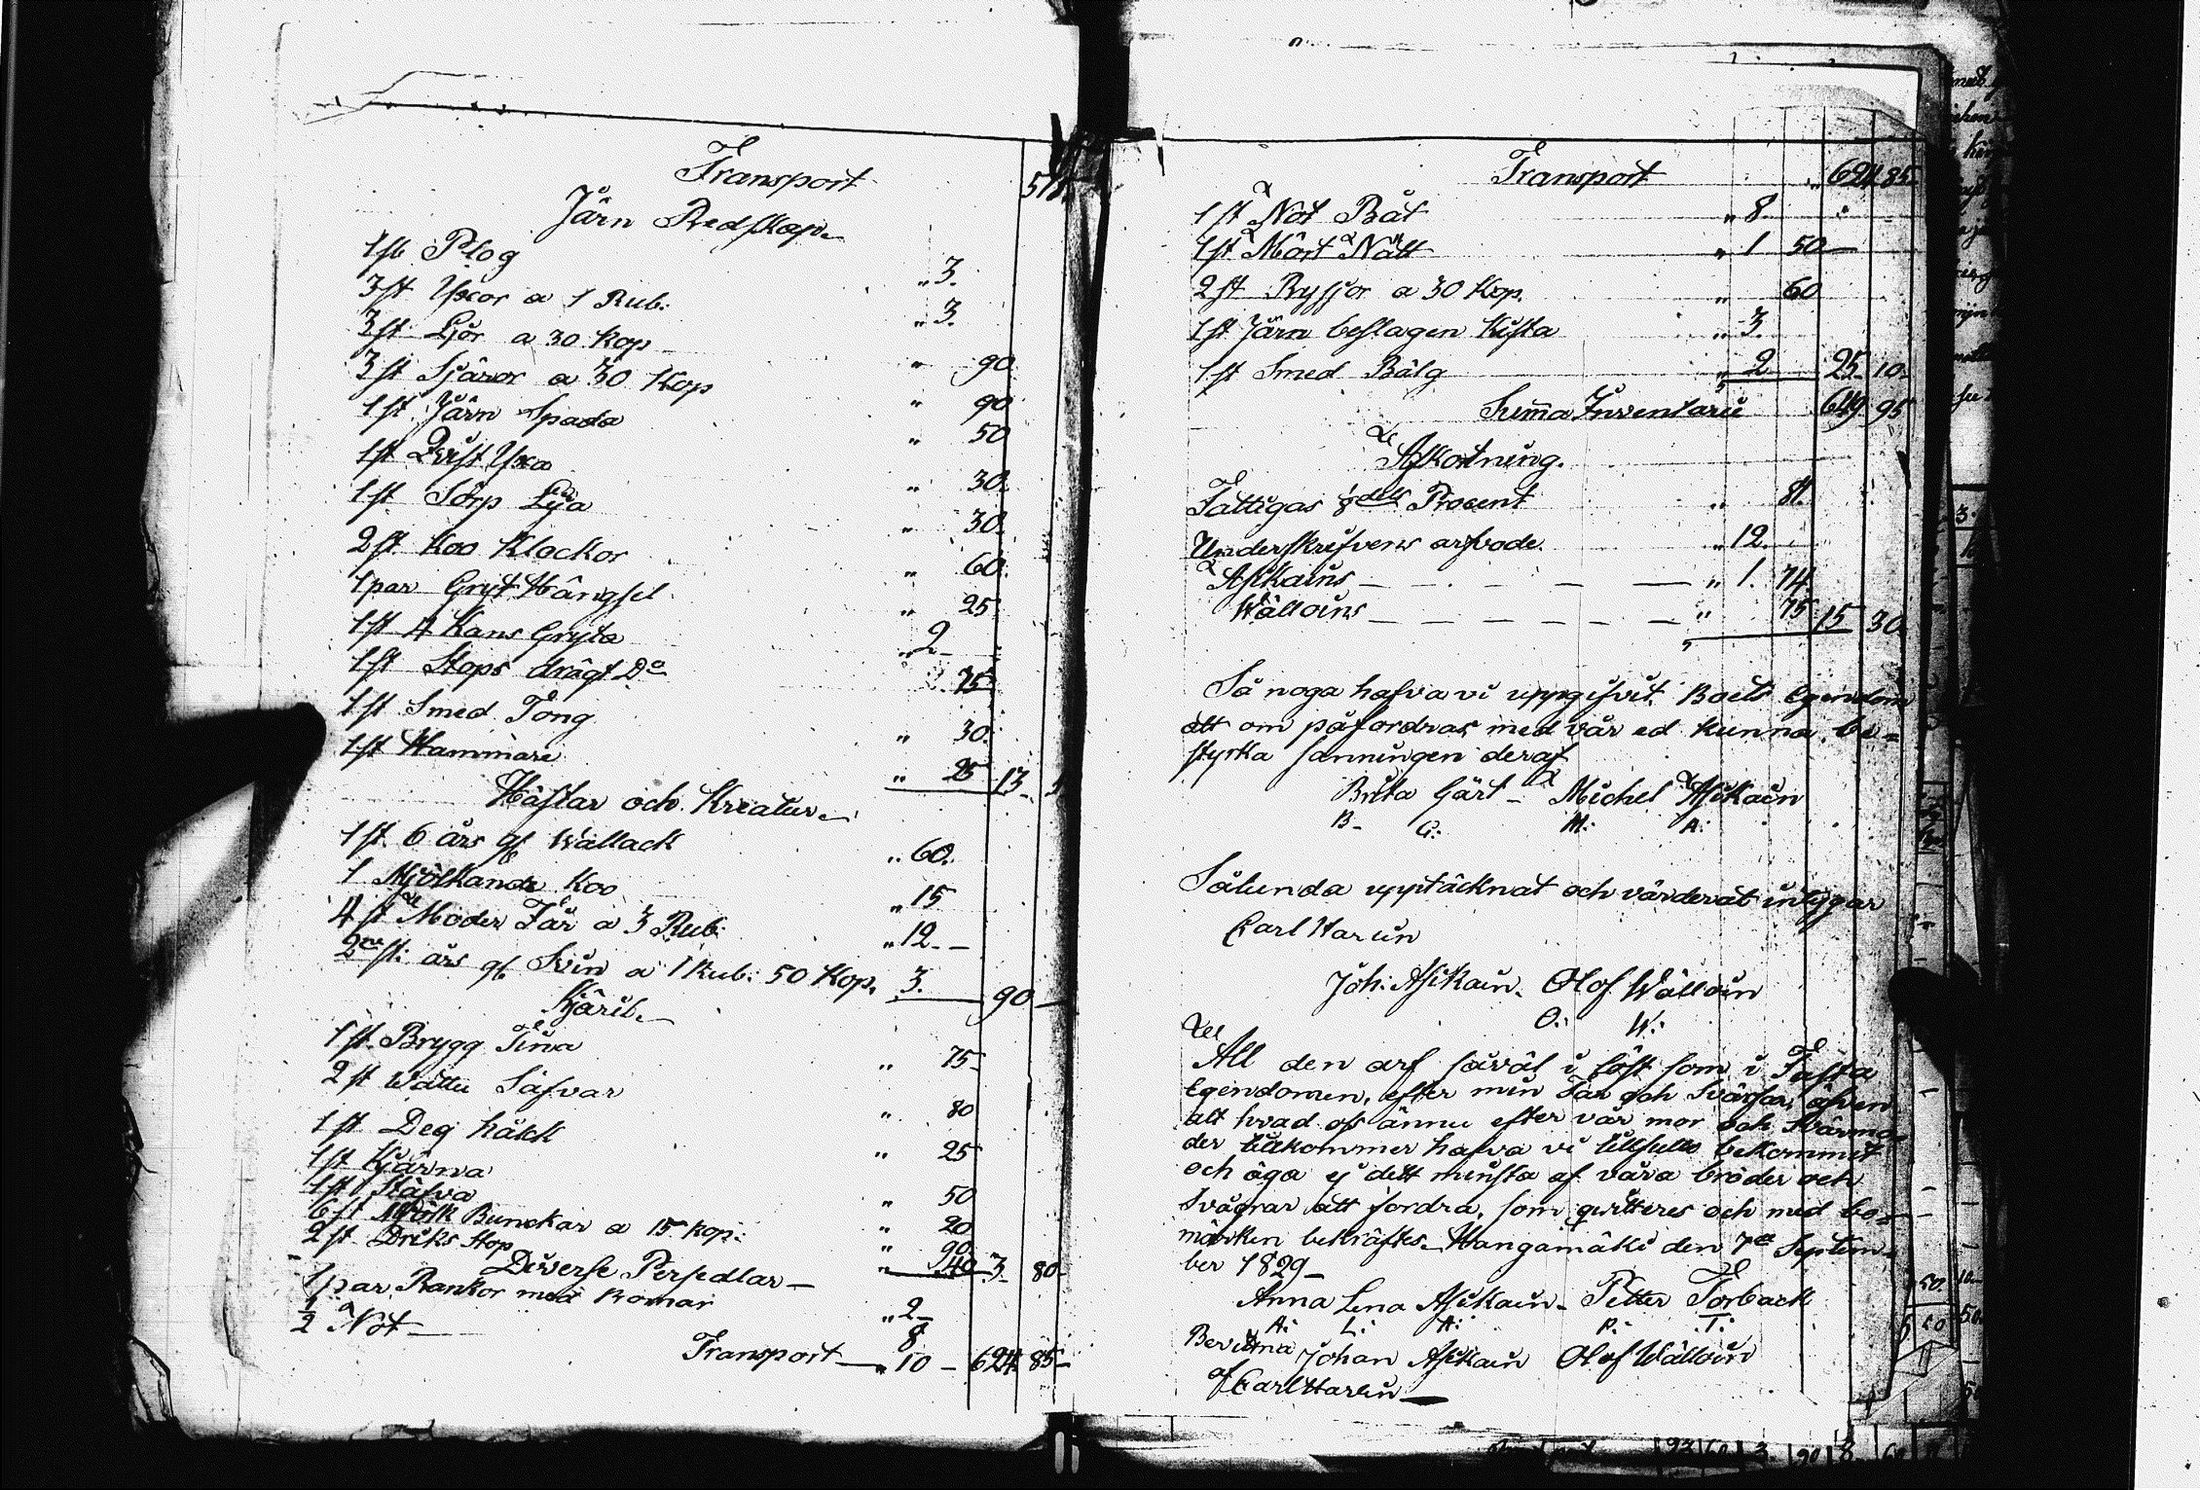 Transport 518.
Järn Redskap.
1 st Plog " 3.
3 st Yxor a 1 Rub: " 3.
3 st Ljör a 30 Kop " 90
3 st Sjäror a 30 Kop " 90
1 st Järn Spada " 50
1 st Qvist Yxa " 30.
1 st Sörp Lya " 30.
2 st Koo Klockor " 60.
1 par Gryt Hängsel " 25
1 st 4 Kans Gryta " 2
1 st Stops drägt Do 75
1 st Smed Tong " 30.
1 st Hammare " 25 13
Hästar och Kreatur.
1 st 6 års gl Wallack " 60.
1 Mjölkande Koo " 15
4 st Moder Får a 3 Rub: " 12. –
2ne st: års gl Svin a 1 Rub: 50 Kop. 3. 90 –
Kjäril.
1 st Brygg Tina " 75
2 st Wattu Säfvar " 80
1 st Deg håck " 25
1 st Kjärna " 50
1 st Stäfva " 20
6 st Mjölk Bunckar a 15 kop: " 90
2 st Driks Stop " 40 3 80
Diverse Persedlar –
1 par Rankor med Romar " 2 –
1/2 Nöt – 8
Transport – " 10 – 624 85 –
Transport " 624 85
1 st Nöt Båt " 8.
1 st Mört Nätt " 1 50 –
2 st Ryssjor a 30 Kop. " 60
1 st Järn beslagen Kista " 3.
1 st Smed Bälg " 2 25 10
Summa Inventarii 649 95
Afkortning.
Fattigas 1/8 dels Procent " 81.
Underskrifvens arfvode. " 12.
Asikains – – – – " 1. 74
Wälloins – – – – – – " 75 15 30
Så noga hafva vi uppgifvit Boets Egendom
att om påfordras med vår ed kunna be=
styrka sanningen deraf
Brita Gärt – Michel Asikain
B – G: M: A:
Sålunda upptäcknat och värderat intygar
Carl Harlin
Joh: Asikain. Olof Wälloin
O: W:
All den arf såväl i löst som i Fasta
Egendomen, efter min Far och Svärfar, äfven
alt hvad oss ännu efter vår mor och Svärmo=
der tilkommer hafva vi tillfullo bekommit
och äga ej dett minsta af våra bröder och
Svågrar att fordra, som qvitteres och med bo=
märken bekräftes. Hangamäki den 7de Septem=
ber 1829 –
Anna Lena Asikain – Petter Torback
A: L: A: P: T:
Bevittna Johan Asikain Olof Wälloin
af Carl Harlin –